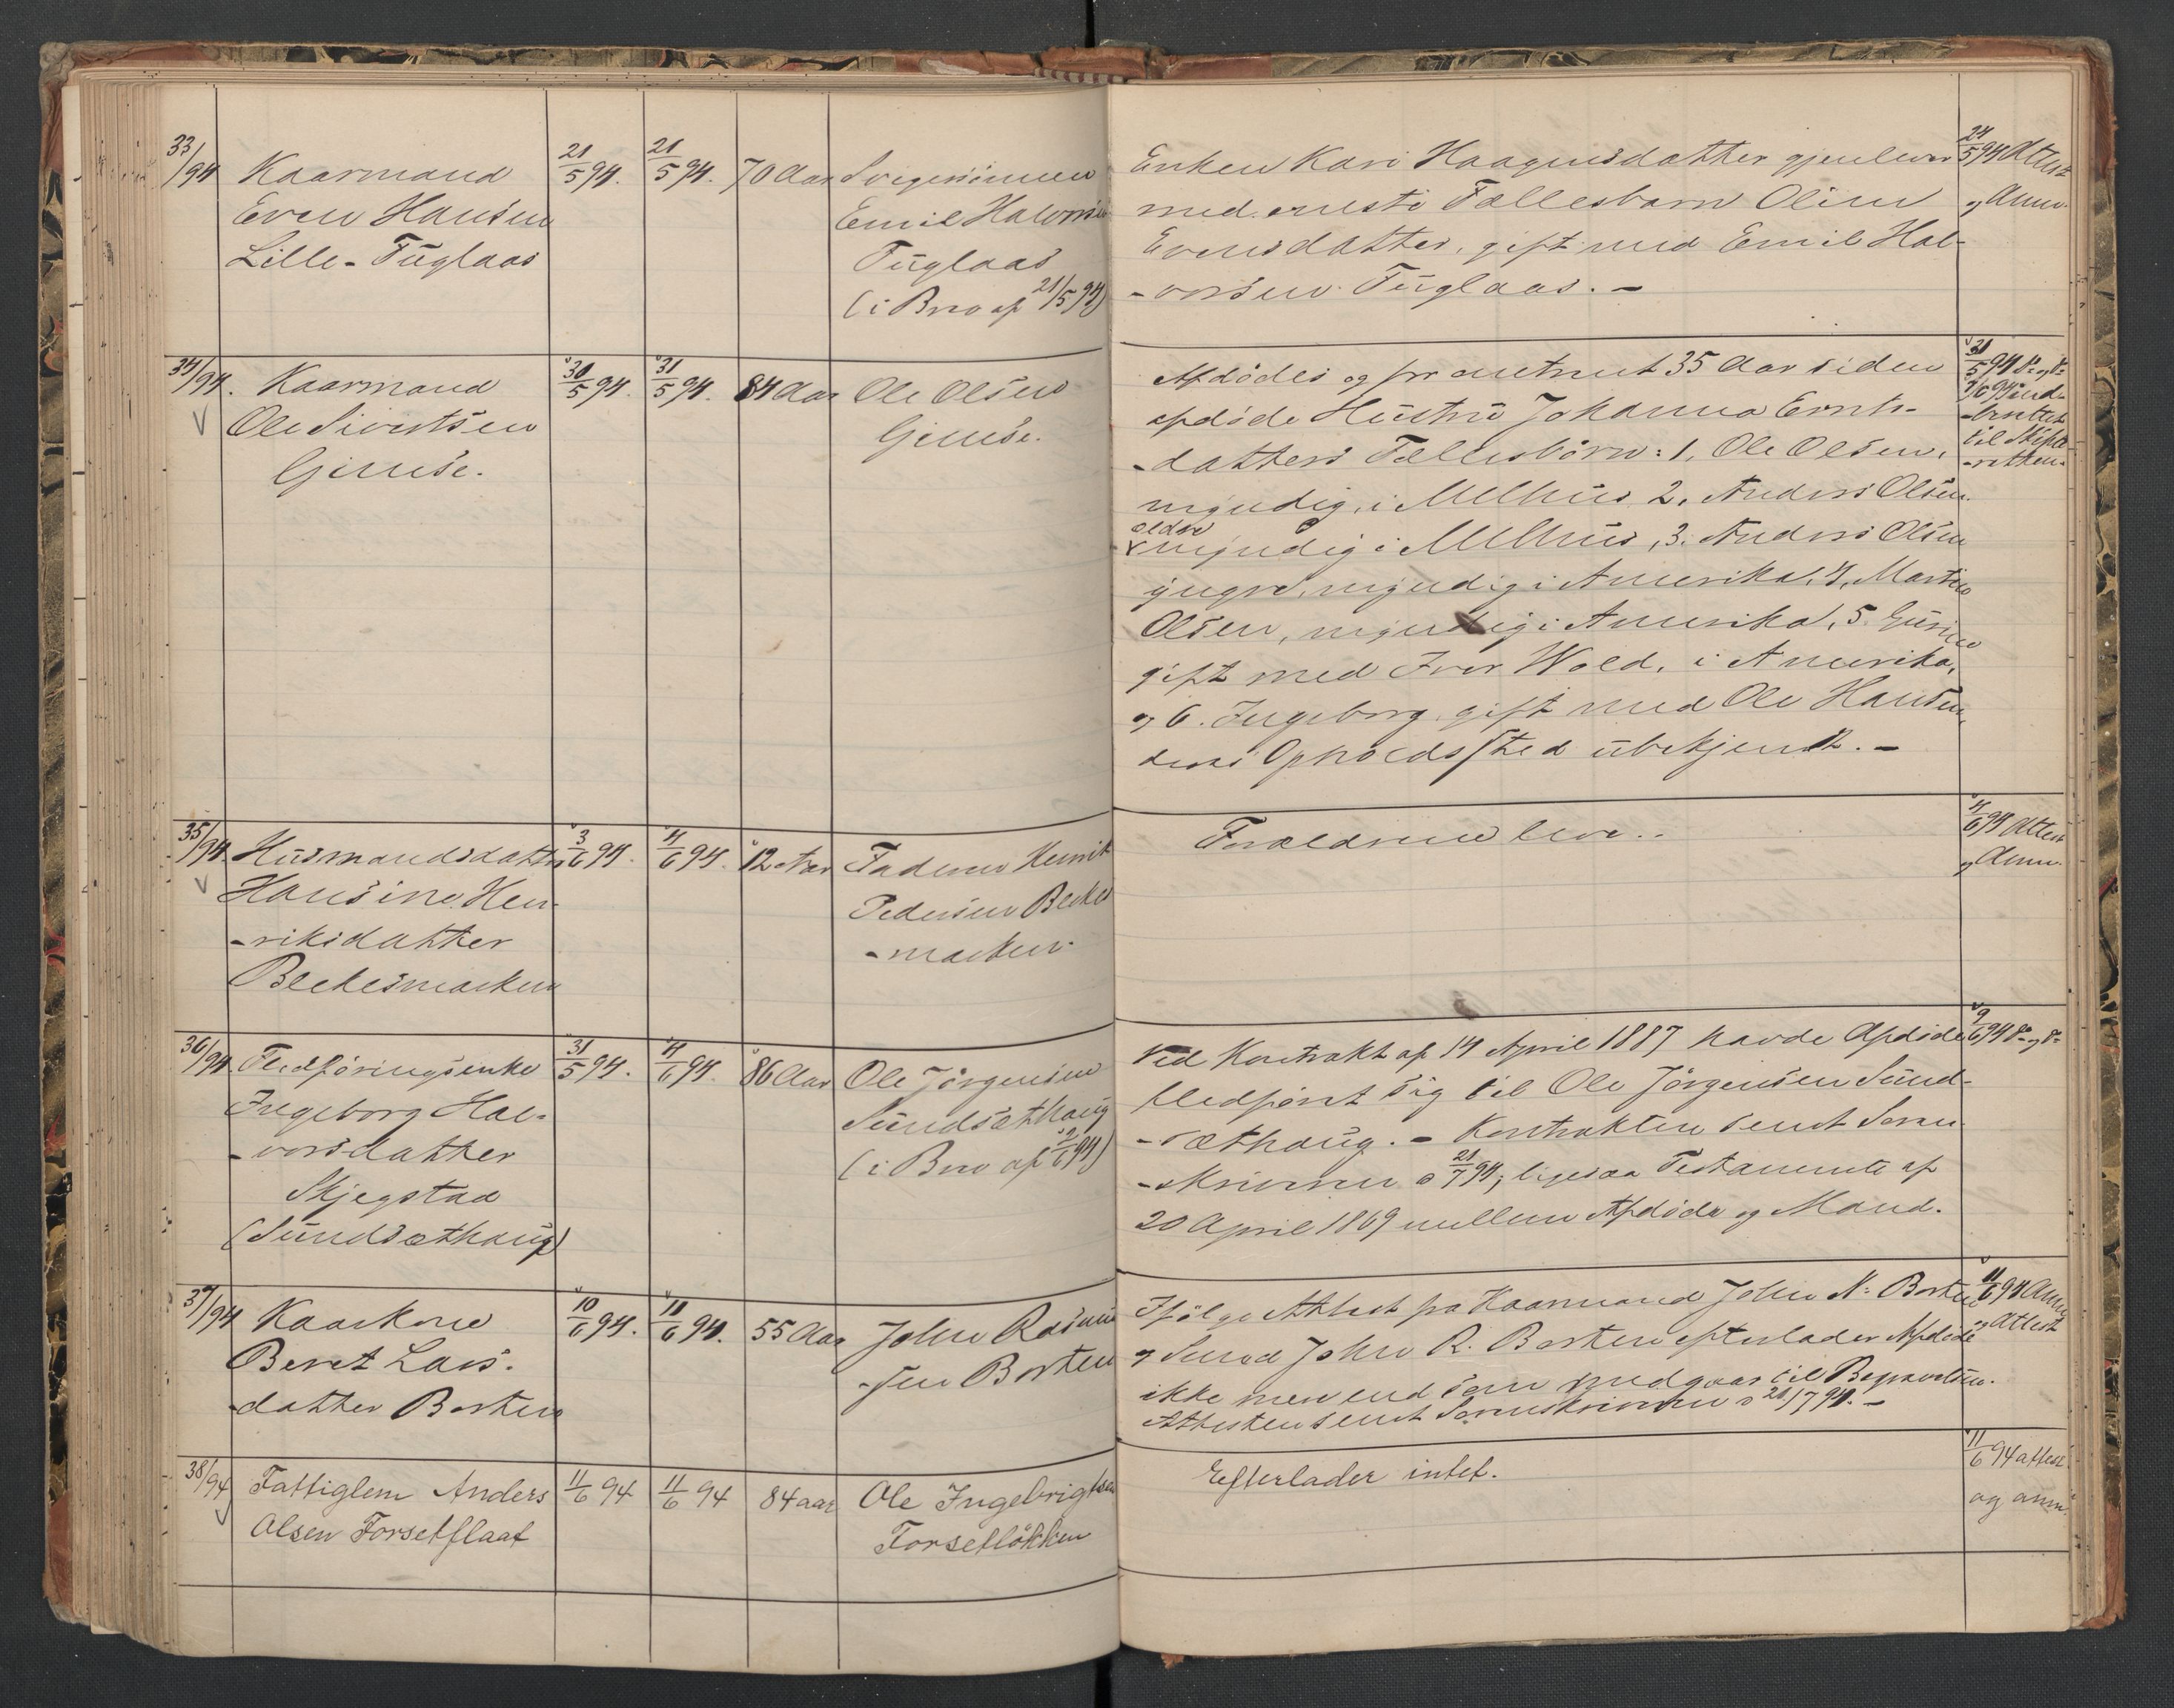 33/94 Kaarmand 21/5 94. 21/5 94. 70 Aar Svigersønnen
Even Hansen Emil Halvorsen
Lille-Fuglaas Fuglaas
(i Brev af 21/5 94)
Enken Kari Haagensdatter gjenlever 24/5 94 Attest
med eneste Fællesbarn Oline og Anm.
Evensdatter, gift med Emil Hal-
-vorsen Fuglaas. -
34/94. Kaarmand 30/5 94. 31/5 94. 84 Aar Ole Olsen
Ole Sivertsen Gimse.
Gimse.
Afdødes og for omtrent 35 Aar siden 31/5 94 do og do
afdøde Hustru Johanna Ernts- 9/6 94 ind-
-datters Fællesbørn: 1, Ole Olsen, -berettet
myndig, i Melhus, 2, Anders Olsen til Skifte-
ældre myndig i Melhus, 3. Anders Olsen -retten.
yngre, myndig i Amerika, 4, Martin
Olsen, myndig i Amerika, 5. Gurine
gift med Iver Wold, i Amerika,
og 6. Ingeborg, gift med Ole Hansen,
deres Opholdssted ubekjendt. -
35/94 Husmandsdatter 3/6 94. 4/6 94. 12 Aar Faderen Henrik
Hansine Hen- Pedersen Blekes
-riksdatter -marken.
Blekesmarken
Forældrene leve. 4/6 94 Attest
og Anm.
36/94 Fledføringsenke 31/5 94. 4/6 94. 86 Aar Ole Jørgensen
Ingeborg Hal- Sundsæthaug
-vorsdatter (i Brev af 2/6 94)
Skjegstad
(Sundsæthaug)
Ved Kontrakt af 14 April 1887 havde Afdøde 9/6 94 do og do
fledført sig til Ole Jørgensen Sund-
-sæthaug. - Kontrakten sendt Soren-
-skriveren d 21/7 94, ligesaa Testamente af
20 April 1869 mellem Afdøde og Mand.
37/94 Kaarkone 10/6 94. 11/6 94. 55 Aar John Rasmus
Beret Lars- -sen Borten
-datter Borten
Ifølge Attest fra Kaarmand John N. Borten 11/6 94 Anm
og Svend John R. Borten efterlader Afdøde og Attest
ikke mere end som medgaar til Begravelsen.
Attesten sendt Sorenskriveren d 21/7 94. -
38/94 Fattiglem Anders 11/6 94 11/6 94 84 aar Ole Ingebrigtsen
Olsen Forsetflaat Forsetløkken
Efterlader intet. 11/6 94 attest
og anm.